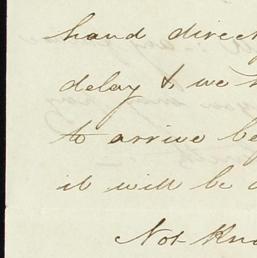 hand direct
delay & we
to arrive be
it will be
Not Kn